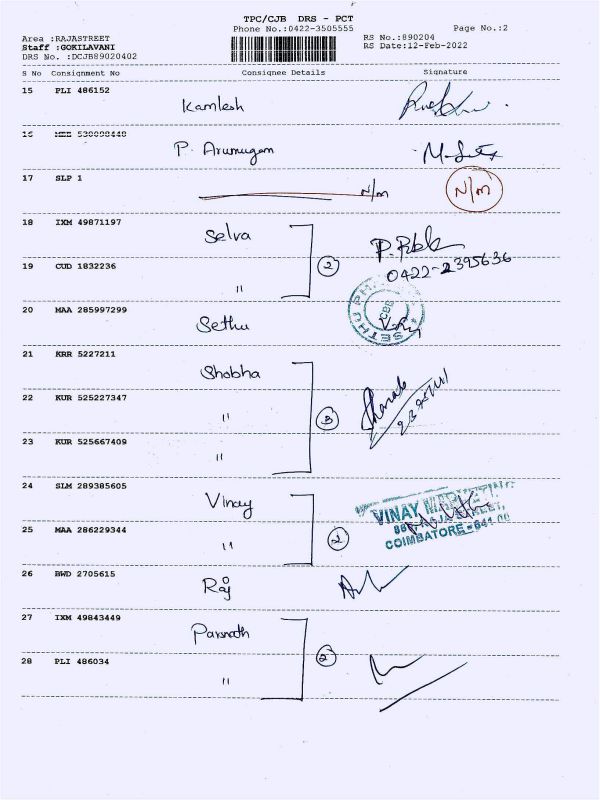 TPC/CJB DRS - PCT
Phone No.:0422-3505555
Page No.:2
Area :RAJASTREET
Staff :GOKILAVANI
DRS No. :DCJB89020402
RS No.:890204
RS Date:12-Feb-2022
S No Consignment No Consignee Details Signature
15 PLI 486152
Kamlesh
16
P. Arumugam
17 SLP 1
N/m N/m
18 IXM 49871197
Selva
19 CUD 1832236
" 2
0422-2395636
20 MAA 285997299
Sethu
SETHU PH
CBE
21 KRR 5227211
Shobha
22 KUR 525227347
" 3
23 KUR 525667409
"
24 SLM 289385605
Vinay
VINAY MARKETING
25 MAA 286229344
" 2
COIMBATORE - 641 00
26 BWD 2705615
Raj
27 IXM 49843449
Parsnath
2
28 PLI 486034
"